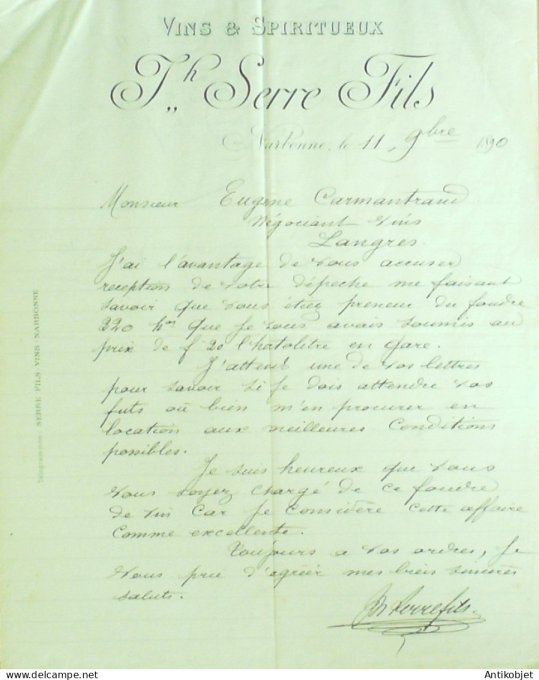 VINS & SPIRITUEUX
Jh Serre Fils
Narbonne, le 11 9bre 1890
Monsieur Eugène Carmantrand
Négociant vins
Langres
J'ai l'avantage de vous accuser
reception de votre dépeche me faisant
savoir que vous étiez preneur du foudre
220 htres que je vous avais soumis au
prix de f 20 l'hectolitre en gare.
J'attend une de vos lettres
pour savoir si je dois attendre vos
futs où bien m'en procurer en
location aux meilleures conditions
possibles.
Je suis heureux que vous
vous soyez chargé de ce foudre
de vin car je considère cette affaire
comme excellente.
Toujours a vos ordres, je
vous prie d'agréer mes bien sincères
saluts.
Jh Serre fils
SERRE FILS VINS NARBONNE
Antikobjet